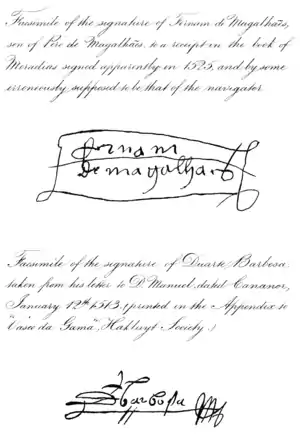 Facsimile of the signature of Fernam de Magalhães,
son of Pero de Magalhães to a receipt in the book of
Moradias signed apparently in 1525, and by some
erroneously supposed to be that of the navigator
fernam
de magalhães
Facsimile of the signature of Duarte Barbosa,
taken from his letter to D. Manuel, dated Cananor,
January 12th 1513, (printed in the Appendix to
"Vasco da Gama", Hakluyt Society.)
Barbosa